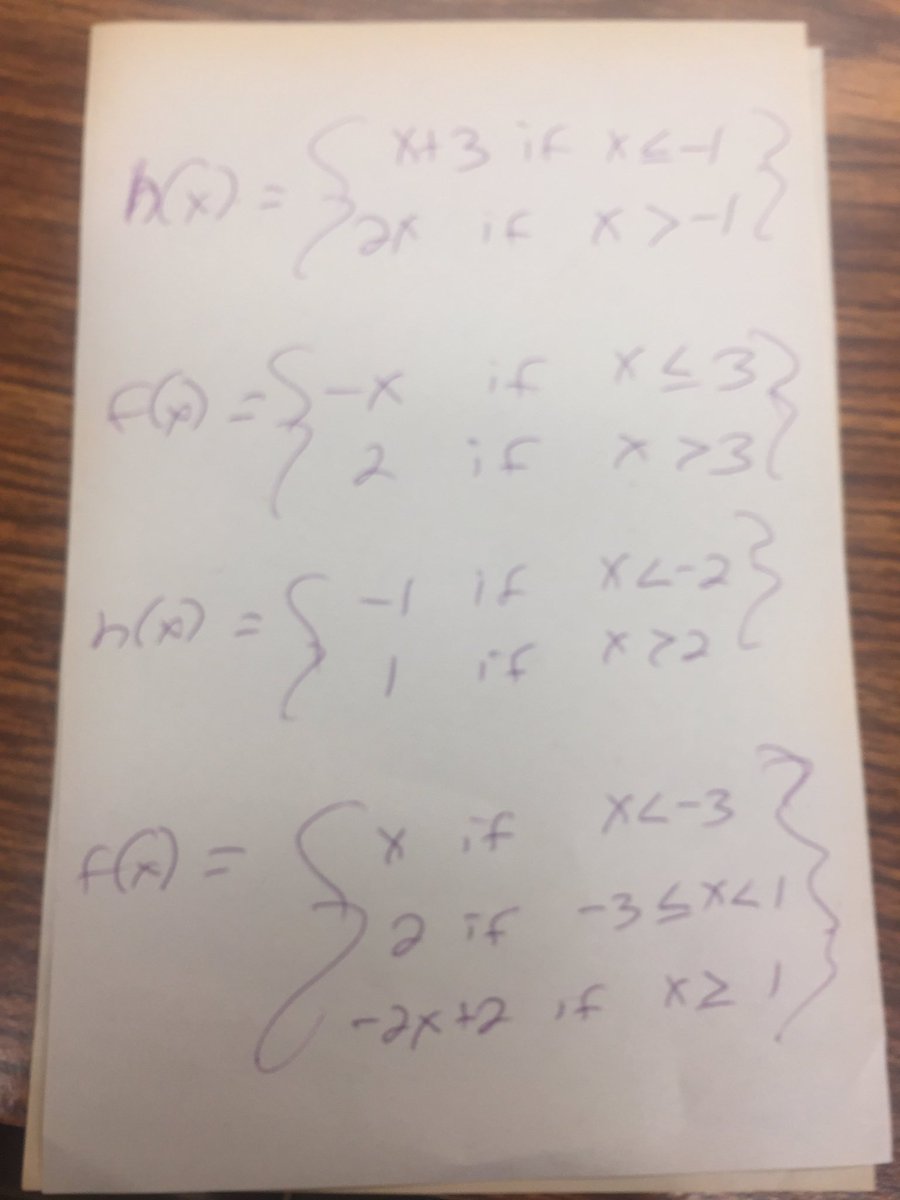 h(x) = { x+3 if x ≤ -1 }
2x if x > -1
f(x) = { -x if x ≤ 3 }
2 if x > 3
h(x) = { -1 if x < -2 }
1 if x > 2
f(x) = { x if x < -3 }
2 if -3 ≤ x < 1
-2x+2 if x ≥ 1